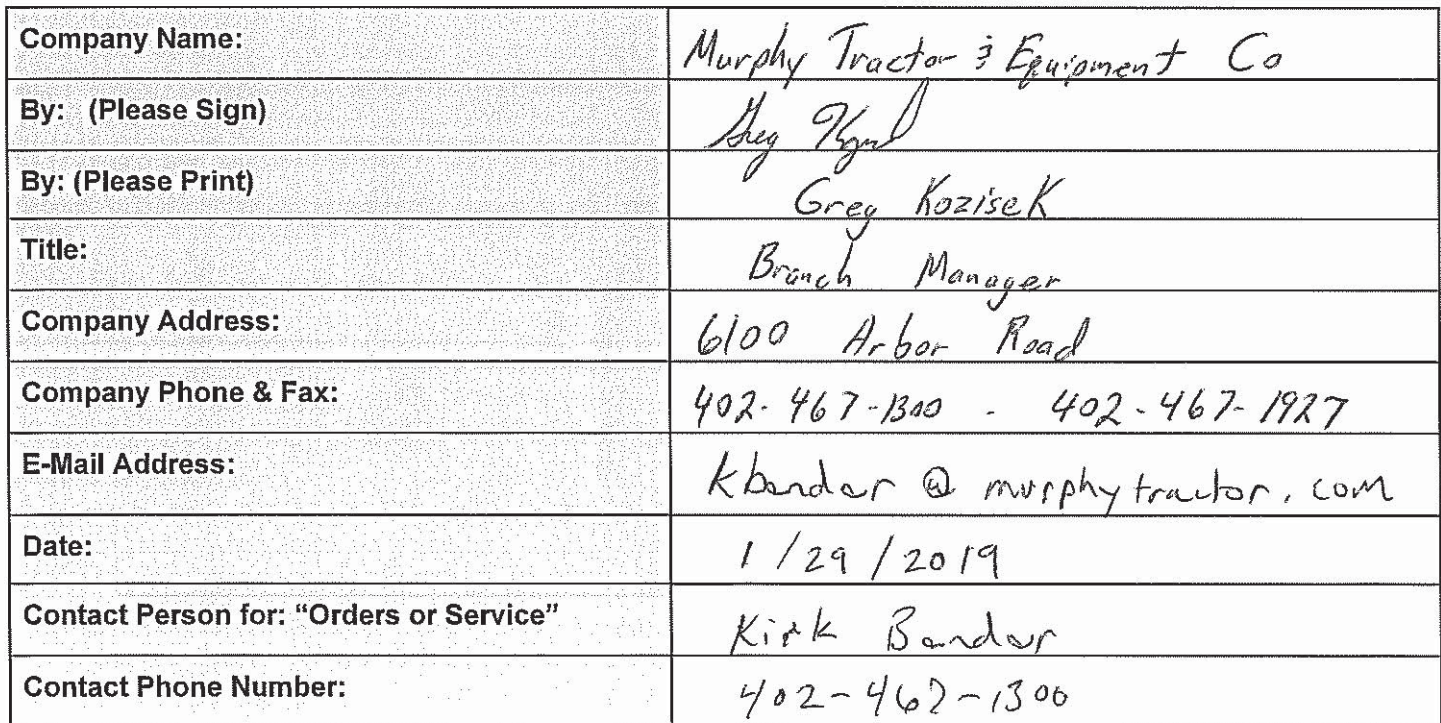 Company Name: Murphy Tractor & Equipment Co
By: (Please Sign) Greg
By: (Please Print) Greg Kozisek
Title: Branch Manager
Company Address: 6100 Arbor Road
Company Phone & Fax: 402-467-1300 - 402-467-1927
E-Mail Address: kbandar @ murphytractor.com
Date: 1/29/2019
Contact Person for: “Orders or Service” Kirk Bandar
Contact Phone Number: 402-467-1300